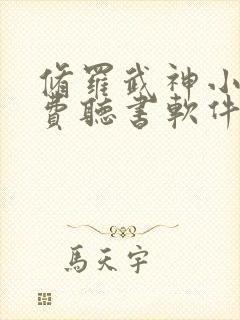 脩羅武神小
費聽書軟件
馬天宇